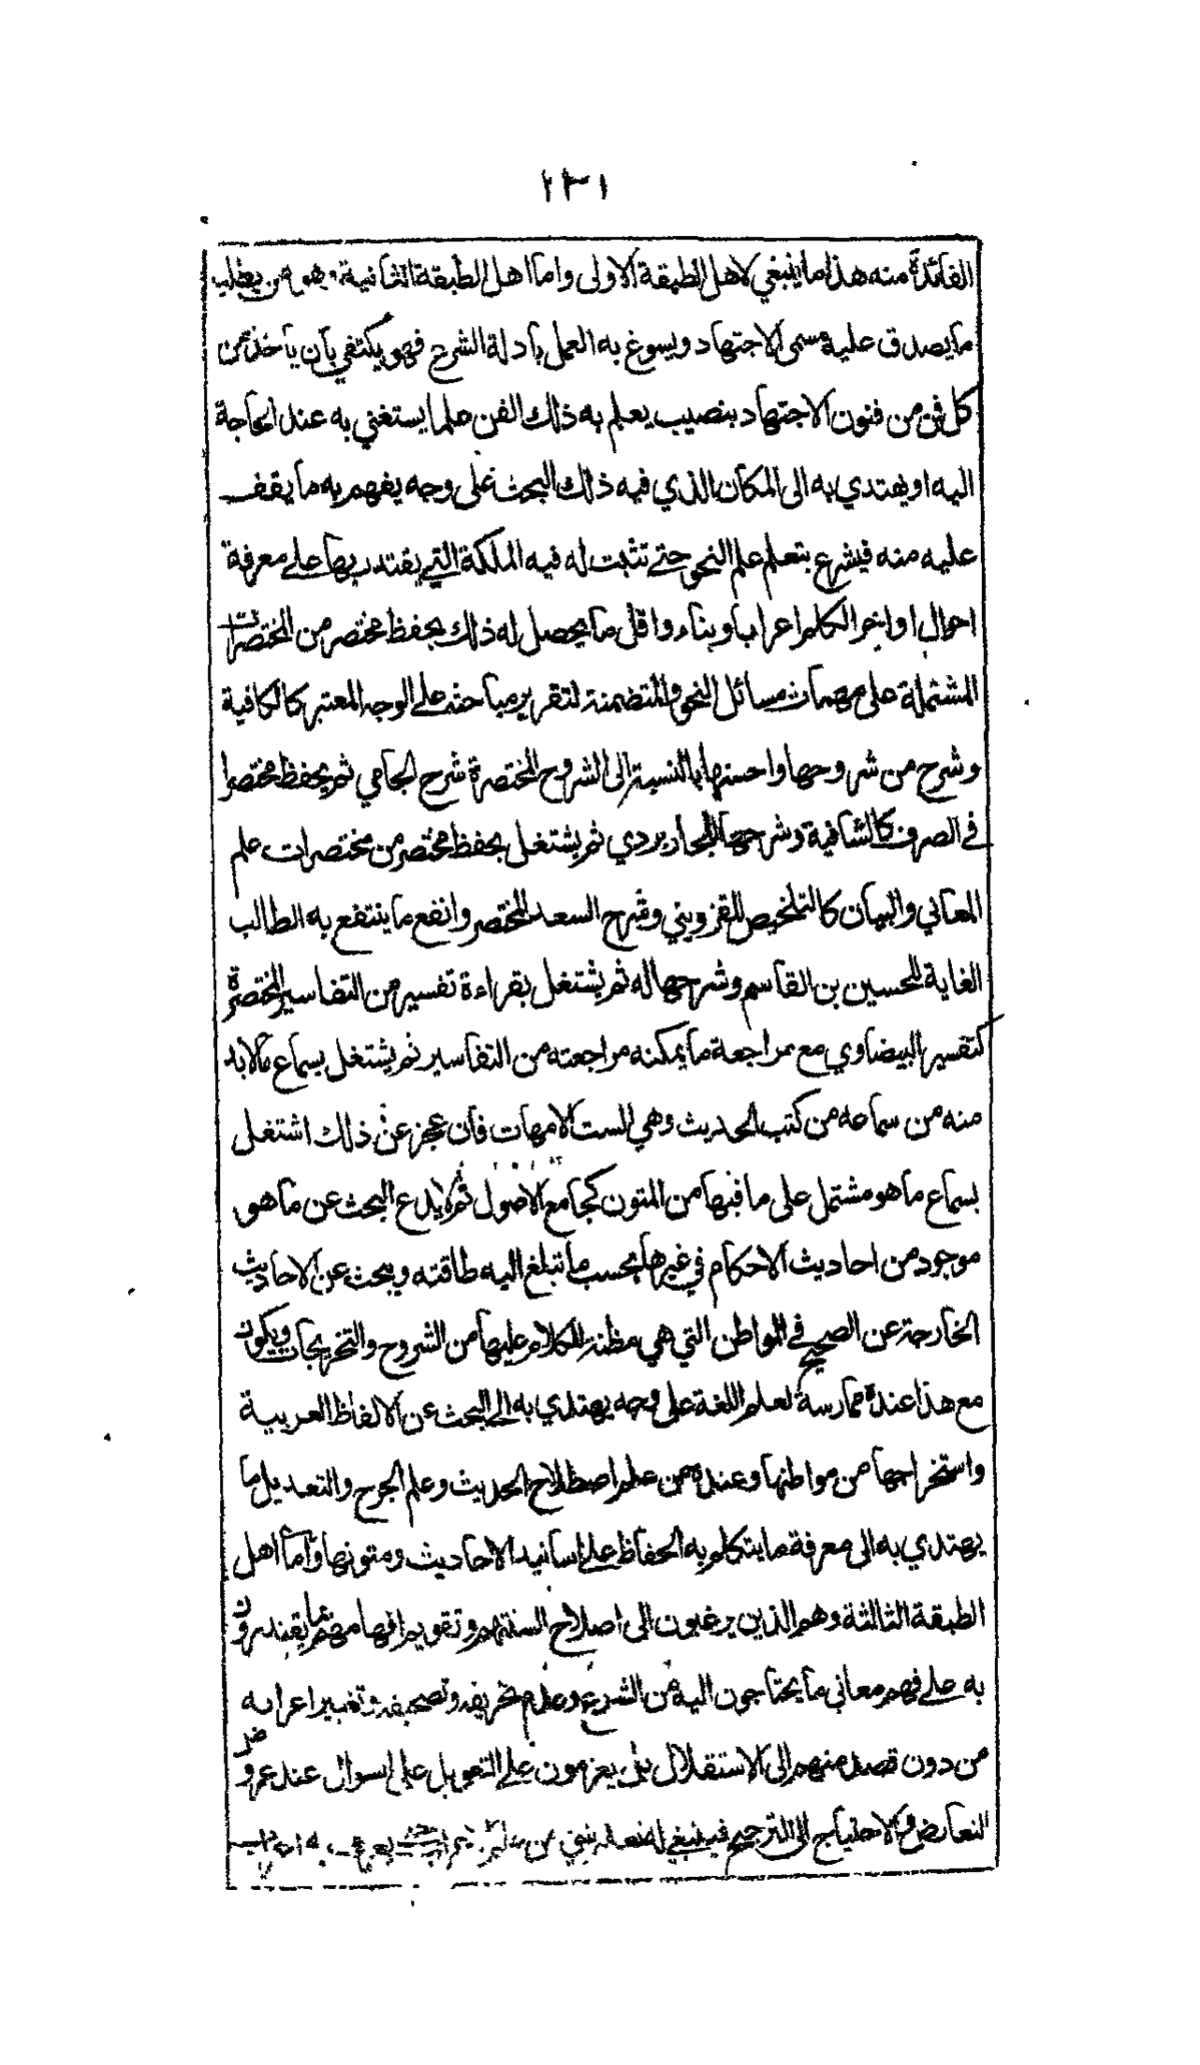 ٢٣١
الفائدة منه هذا ما ينبغي لاهل الطبقة الاولى واما اهل الطبقة الثانية وهو من يطلب
ما يصدق عليه مسمى الاجتهاد ويسوغ به العمل بادلة الشرع فهو يكتفي بان ياخذ من
كل فن من فنون الاجتهاد بنصيب يعلم به ذلك الفن علما يستغني به عند الحاجة
اليه او يهتدي به الى المكان الذي فيه ذلك البحث على وجه يفهم به ما يقف
عليه منه فيشرع بتعلم علم النحو حتى تثبت له فيه الملكة التي يقتدر بها على معرفة
احوال اواخر الكلم اعرابا وبناء واقل ما يحصل له ذلك بحفظ مختصر من المختصرات
المشتملة على مهمات مسائل النحو والمتضمنة لتقرير مباحثه على الوجه المعتبر كالكافية
وشرح من شروحها واحسنها بالنسبة الى الشروح المختصرة شرح الجامي ثم يحفظ مختصرا
في الصرف كالشافية وشرحها للجاربردي ثم يشتغل بحفظ مختصر من مختصرات علم
المعاني والبيان كالتلخيص للقزويني وشرح السعد المختصر وانفع ما ينتفع به الطالب
الغاية للحسين بن القاسم وشرحها له ثم يشتغل بقراءة تفسير من التفاسير المختصرة
كتفسير البيضاوي مع مراجعة ما يمكنه مراجعته من التفاسير ثم يشتغل بسماع ما لابد
منه من سماعه من كتب الحديث وهي الست الامهات فان عجز عن ذلك اشتغل
بسماع ما هو مشتمل على ما فيها من المتون كجامع الاصول ثم لا يدع البحث عن ما هو
موجود من احاديث الاحكام في غيرها بحسب ما تبلغ اليه طاقته ويبحث عن الاحاديث
الخارجة عن الصحيح في المواطن التي هي مظنة للكلام عليها من الشروح والتخريجات ويكون
مع هذا عنده ممارسة لعلم اللغة على وجه يهتدي به الى البحث عن الالفاظ العربية
واستخراجها من مواطنها وعنده من علم اصطلاح الحديث وعلم الجرح والتعديل ما
يهتدي به الى معرفة ما يتكلم به الحفاظ على اسانيد الاحاديث ومتونها واما اهل
الطبقة الثالثة وهم الذين يرغبون الى اصلاح السنتهم وتقويم افهامهم بما يقتدرون
به على فهم معاني ما يحتاجون اليه من الشرع وعدم تحريفه وتصحيفه وتغيير اعرابه
من دون قصد منهم الى الاستقلال بل يعزمون على التعويل على السوال عند عروض
التعارض والاحتياج الى الترجيح فينبغي